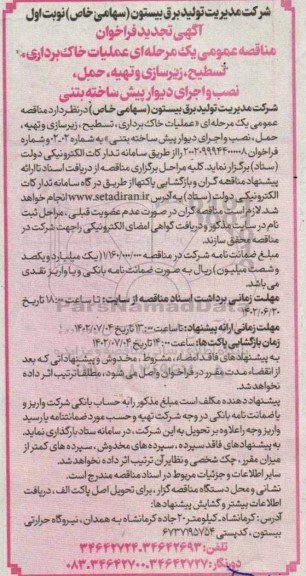 شرکت مدیریت تولید برق بیستون (سهامی خاص) نوبت اول
آگهی تجدید فراخوان
مناقصه عمومی یک مرحله‌ای عملیات خاک برداری،
تسطیح، زیرسازی و تهیه، حمل،
نصب و اجرای دیوار پیش ساخته بتنی
شرکت مدیریت تولید برق بیستون (سهامی خاص) در نظر دارد مناقصه
عمومی یک مرحله‌ای «عملیات خاک برداری، تسطیح، زیرسازی و تهیه،
حمل، نصب و اجرای دیوار پیش ساخته بتنی» به شماره ۲-۰۲ و شماره
فراخوان ۲۰۰۲۰۹۹۹۴۴۰۰۰۰۰۸ را از طریق سامانه تدارکات الکترونیکی دولت
(ستاد) برگزار نماید. کلیه مراحل برگزاری مناقصه از دریافت اسناد تا ارائه
پیشنهاد مناقصه گران و بازگشایی پاکتها از طریق درگاه سامانه تدارکات
الکترونیکی دولت (ستاد) به آدرس www.setadiran.ir انجام خواهد
شد. لازم است مناقصه گران در صورت عدم عضویت قبلی، مراحل ثبت
نام در سایت مذکور و دریافت گواهی امضای الکترونیکی را جهت شرکت در
مناقصه محقق سازند.
مبلغ ضمانت نامه شرکت در مناقصه ۱/۱۶۰/۰۰۰/۰۰۰ (یک میلیارد و یکصد
و شصت میلیون) ریال به صورت ضمانت نامه بانکی و یا واریز نقدی
می باشد.
مهلت زمانی برداشت اسناد مناقصه از سایت: تا ساعت ۱۸:۰۰ تاریخ
۱۴۰۲/۰۶/۲۰
مهلت زمانی ارائه پیشنهاد: تا ساعت ۱۳:۰۰ تاریخ ۱۴۰۲/۰۷/۰۴
زمان بازگشایی پاکت‌ها: ساعت ۱۴:۰۰ تاریخ ۱۴۰۲/۰۷/۰۴
به پیشنهادهای فاقد امضاء، مشروط، مخدوش و پیشنهاداتی که بعد
از انقضاء مدت مقرر در فراخوان واصل می شود، مطلقاً ترتیب اثر داده
نخواهد شد.
پیشنهاد دهنده مکلف است مبلغ مذکور را به حساب بانکی شرکت واریز و
یا ضمانت نامه بانکی در وجه شرکت تهیه و حسب مورد ضمانتنامه یا رسید
واریز وجه را علاوه بر تحویل به این شرکت، در سامانه ستاد بارگذاری نماید.
به پیشنهادهای فاقد سپرده، سپرده های مخدوش، سپرده های کمتر از
میزان مقرر، چک شخصی و نظایر آن ترتیب اثر داده نخواهد شد.
سایر اطلاعات و جزئیات مربوط در اسناد مناقصه مندرج است.
نشانی و محل دستگاه مناقصه گزار، برای تحویل اصل پاکت الف، دریافت
اطلاعات بیشتر و گشایش پیشنهادها:
آدرس: کرمانشاه - کیلومتر ۲۰ جاده کرمانشاه به همدان، نیروگاه حرارتی
بیستون، کدپستی ۶۷۳۷۱۹۵۷۵۴
تلفن: ۳۴۶۴۲۶۹۳-۳۴۶۴۲۷۲۴
دورنگار: ۳۴۶۴۲۷۲۷-۰۸۳-۳۴۶۴۲۷۰۰